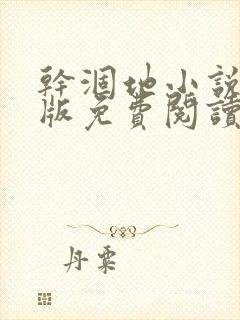 幹涸地小說
版免費閱讀
丹粟